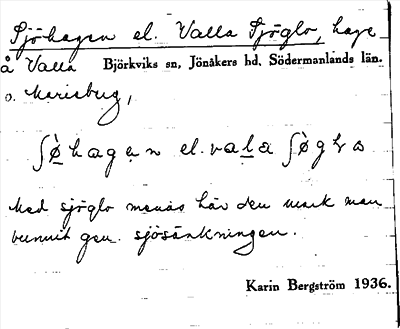 Sjöhagen el. Valla Sjöglo, hage
å Valla Björkviks sn, Jönåkers hd, Södermanlands län.
o. Marieberg,
ʃö̀hagen el. vala ʃöglo
Med sjöglo menas här den mark man
vunnit gen. sjösänkningen.
Karin Bergström 1936.